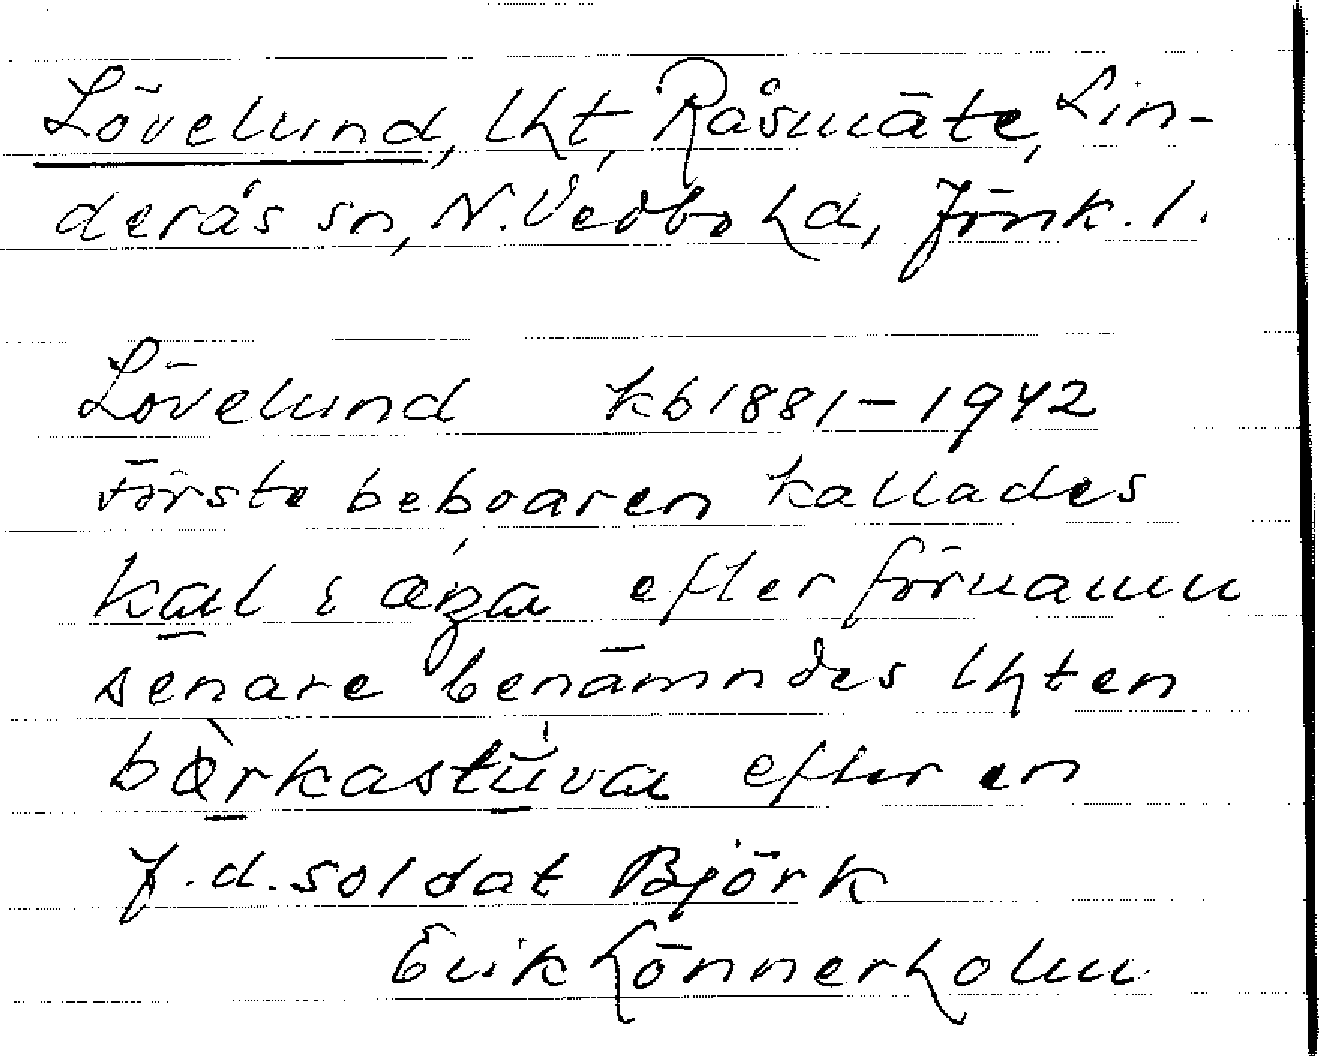 Lövelund, lht, Råsmäte, Lin-
derås sn, N. Vedbo hd, Jönk. l.
Lövelund kb 1881-1942
Förste beboaren kallades
kal i efter förnamn
senare benämndes lhten
bœrkastuva efter en
f.d. soldat Björk
Erik Lönnerholm